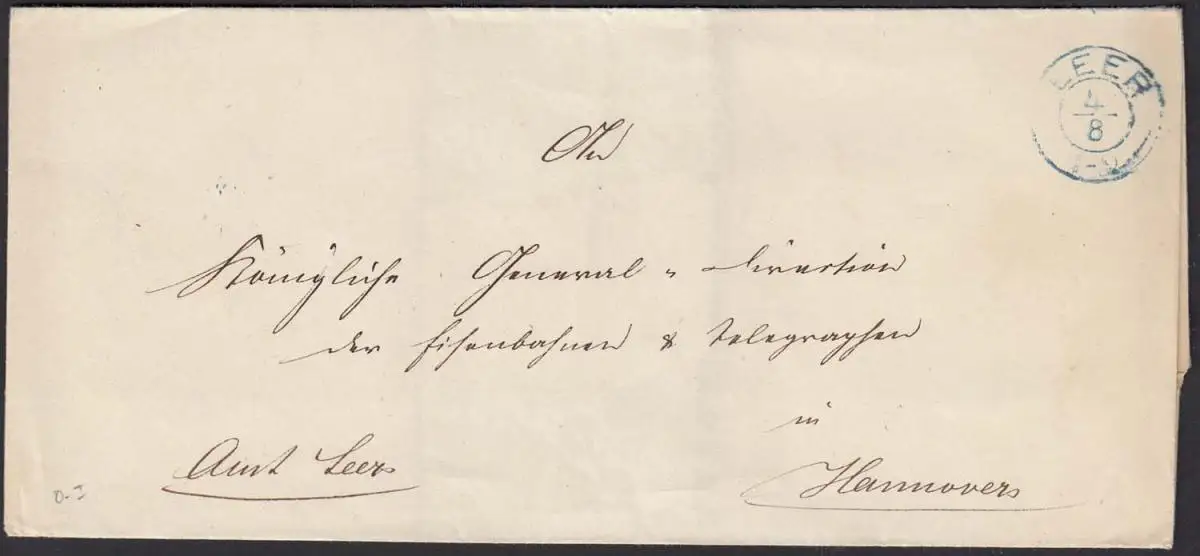 LEER
4
8
An
Königliche General-Direction
der Eisenbahnen & Telegraphen
in
Hannover
Amt Leer